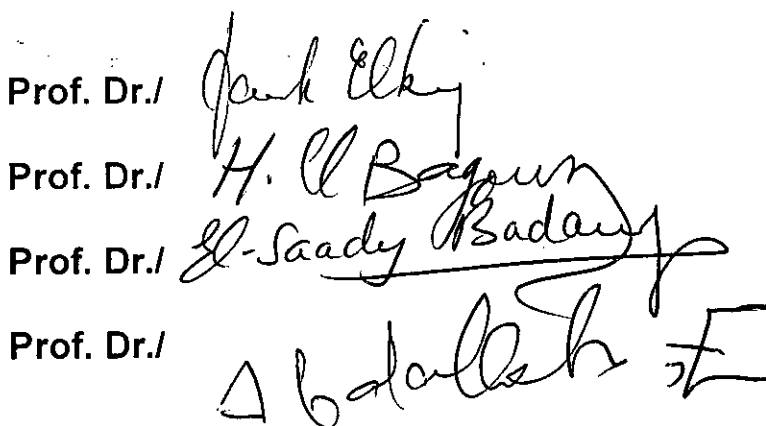 Prof. Dr./
Prof. Dr./ H. El Bagoury
Prof. Dr./ El-Saady Badawy
Prof. Dr./ Abdallah, E